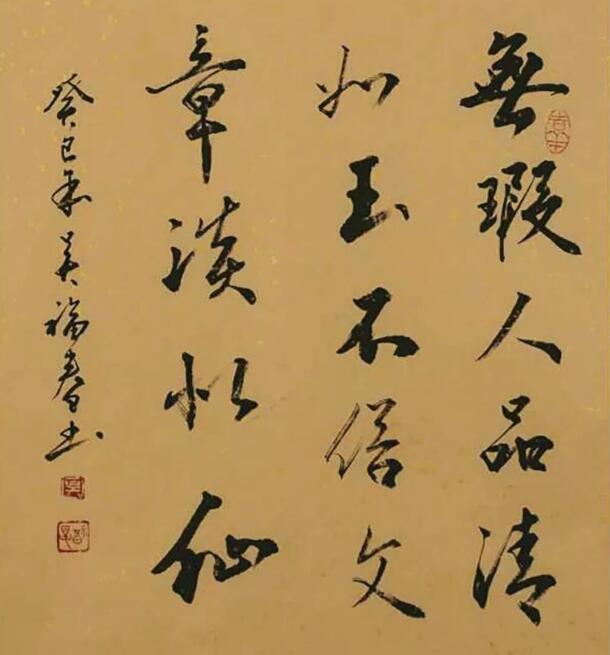 無瑕人品清
如玉不俗文
章淡似仙
癸巳 吴福春书